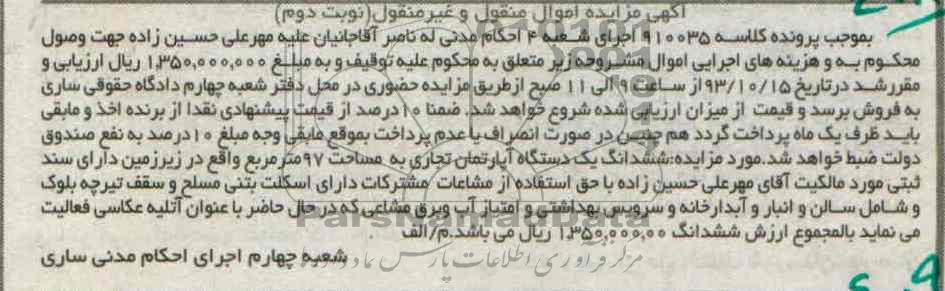 آگهی مزایده اموال منقول و غیرمنقول(نوبت دوم)
بموجب پرونده کلاسه ۹۱۰۰۳۵ اجرای شعبه ۴ احکام مدنی له ناصر آقاجانیان علیه مهرعلی حسین زاده جهت وصول
محکوم به و هزینه های اجرایی اموال مشروحه زیر متعلق به محکوم علیه توقیف و به مبلغ ۱,۳۵۰,۰۰۰,۰۰۰ ریال ارزیابی و
مقرر شد درتاریخ ۹۳/۱۰/۱۵ از ساعت ۹ الی ۱۱ صبح ازطریق مزایده حضوری در محل دفتر شعبه چهارم دادگاه حقوقی ساری
به فروش برسد و قیمت از میزان ارزیابی شده شروع خواهد شد. ضمنا ۱۰درصد از قیمت پیشنهادی نقدا از برنده اخذ و مابقی
باید ظرف یک ماه پرداخت گردد هم چنین در صورت انصراف یا عدم پرداخت بموقع مابقی وجه مبلغ ۱۰درصد به نفع صندوق
دولت ضبط خواهد شد.مورد مزایده:ششدانگ یک دستگاه آپارتمان تجاری به مساحت ۹۷مترمربع واقع در زیرزمین دارای سند
ثبتی مورد مالکیت آقای مهرعلی حسین زاده با حق استفاده از مشاعات مشترکات دارای اسکلت بتنی مسلح و سقف تیرچه بلوک
و شامل سالن و انبار و آبدارخانه و سرویس بهداشتی و امتیاز آب وبرق مشاعی که در حال حاضر با عنوان آتلیه عکاسی فعالیت
می نماید بالمجموع ارزش ششدانگ ۱,۳۵۰,۰۰۰,۰۰ ریال می باشد.م/الف
شعبه چهارم اجرای احکام مدنی ساری